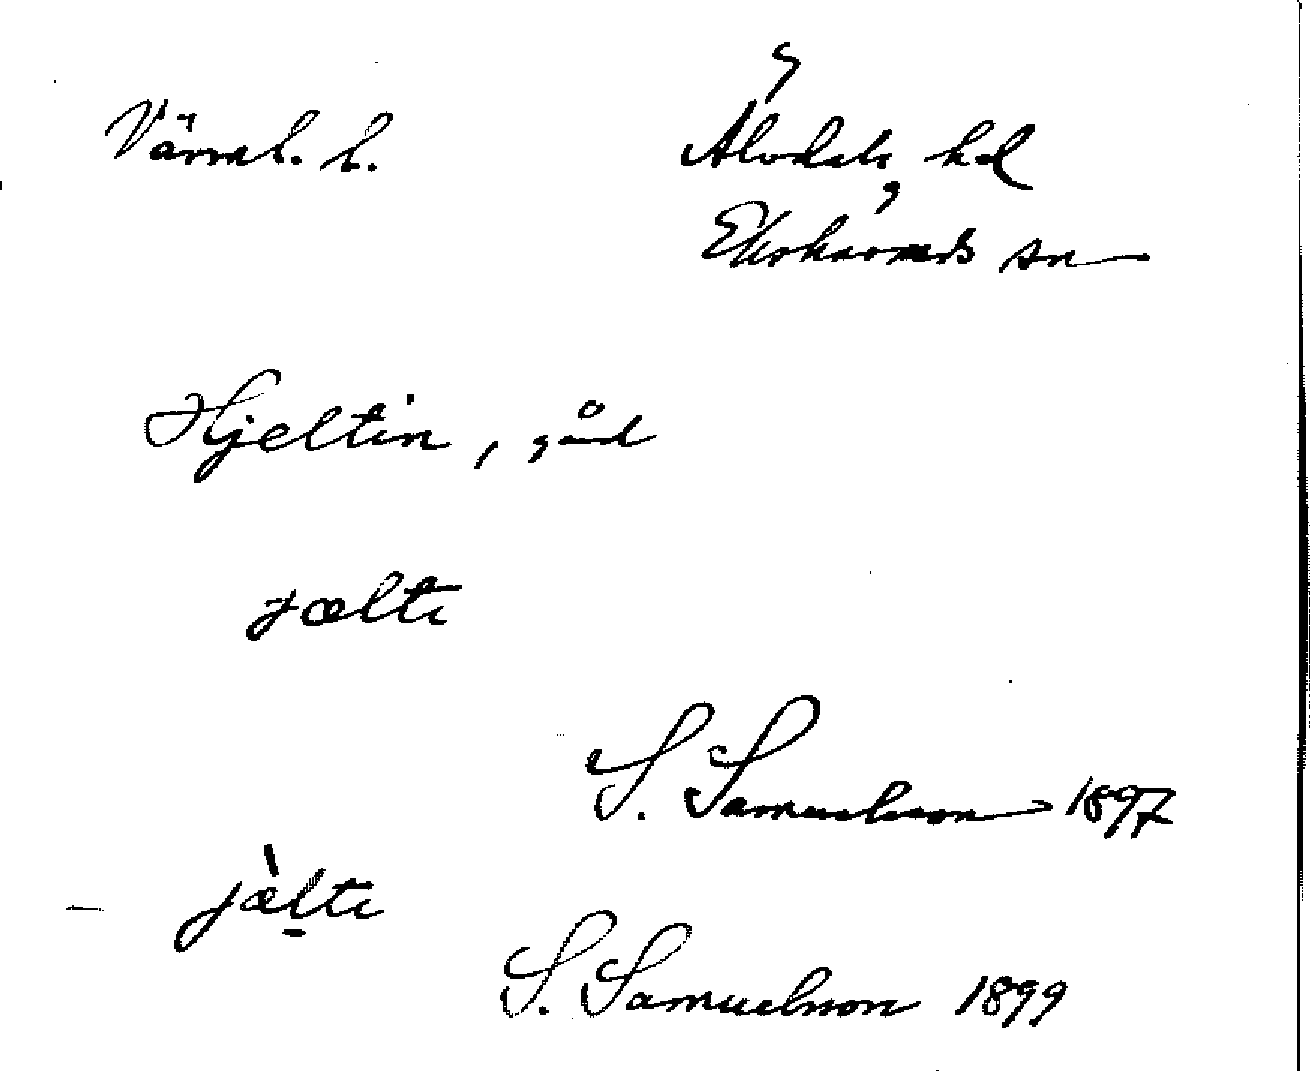 Värml. l. Älvdals hd
Ekshärads sn
Hjeltin, gård
jælti
S. Samuelsson 1897
jæ̀lti
S. Samuelsson 1899